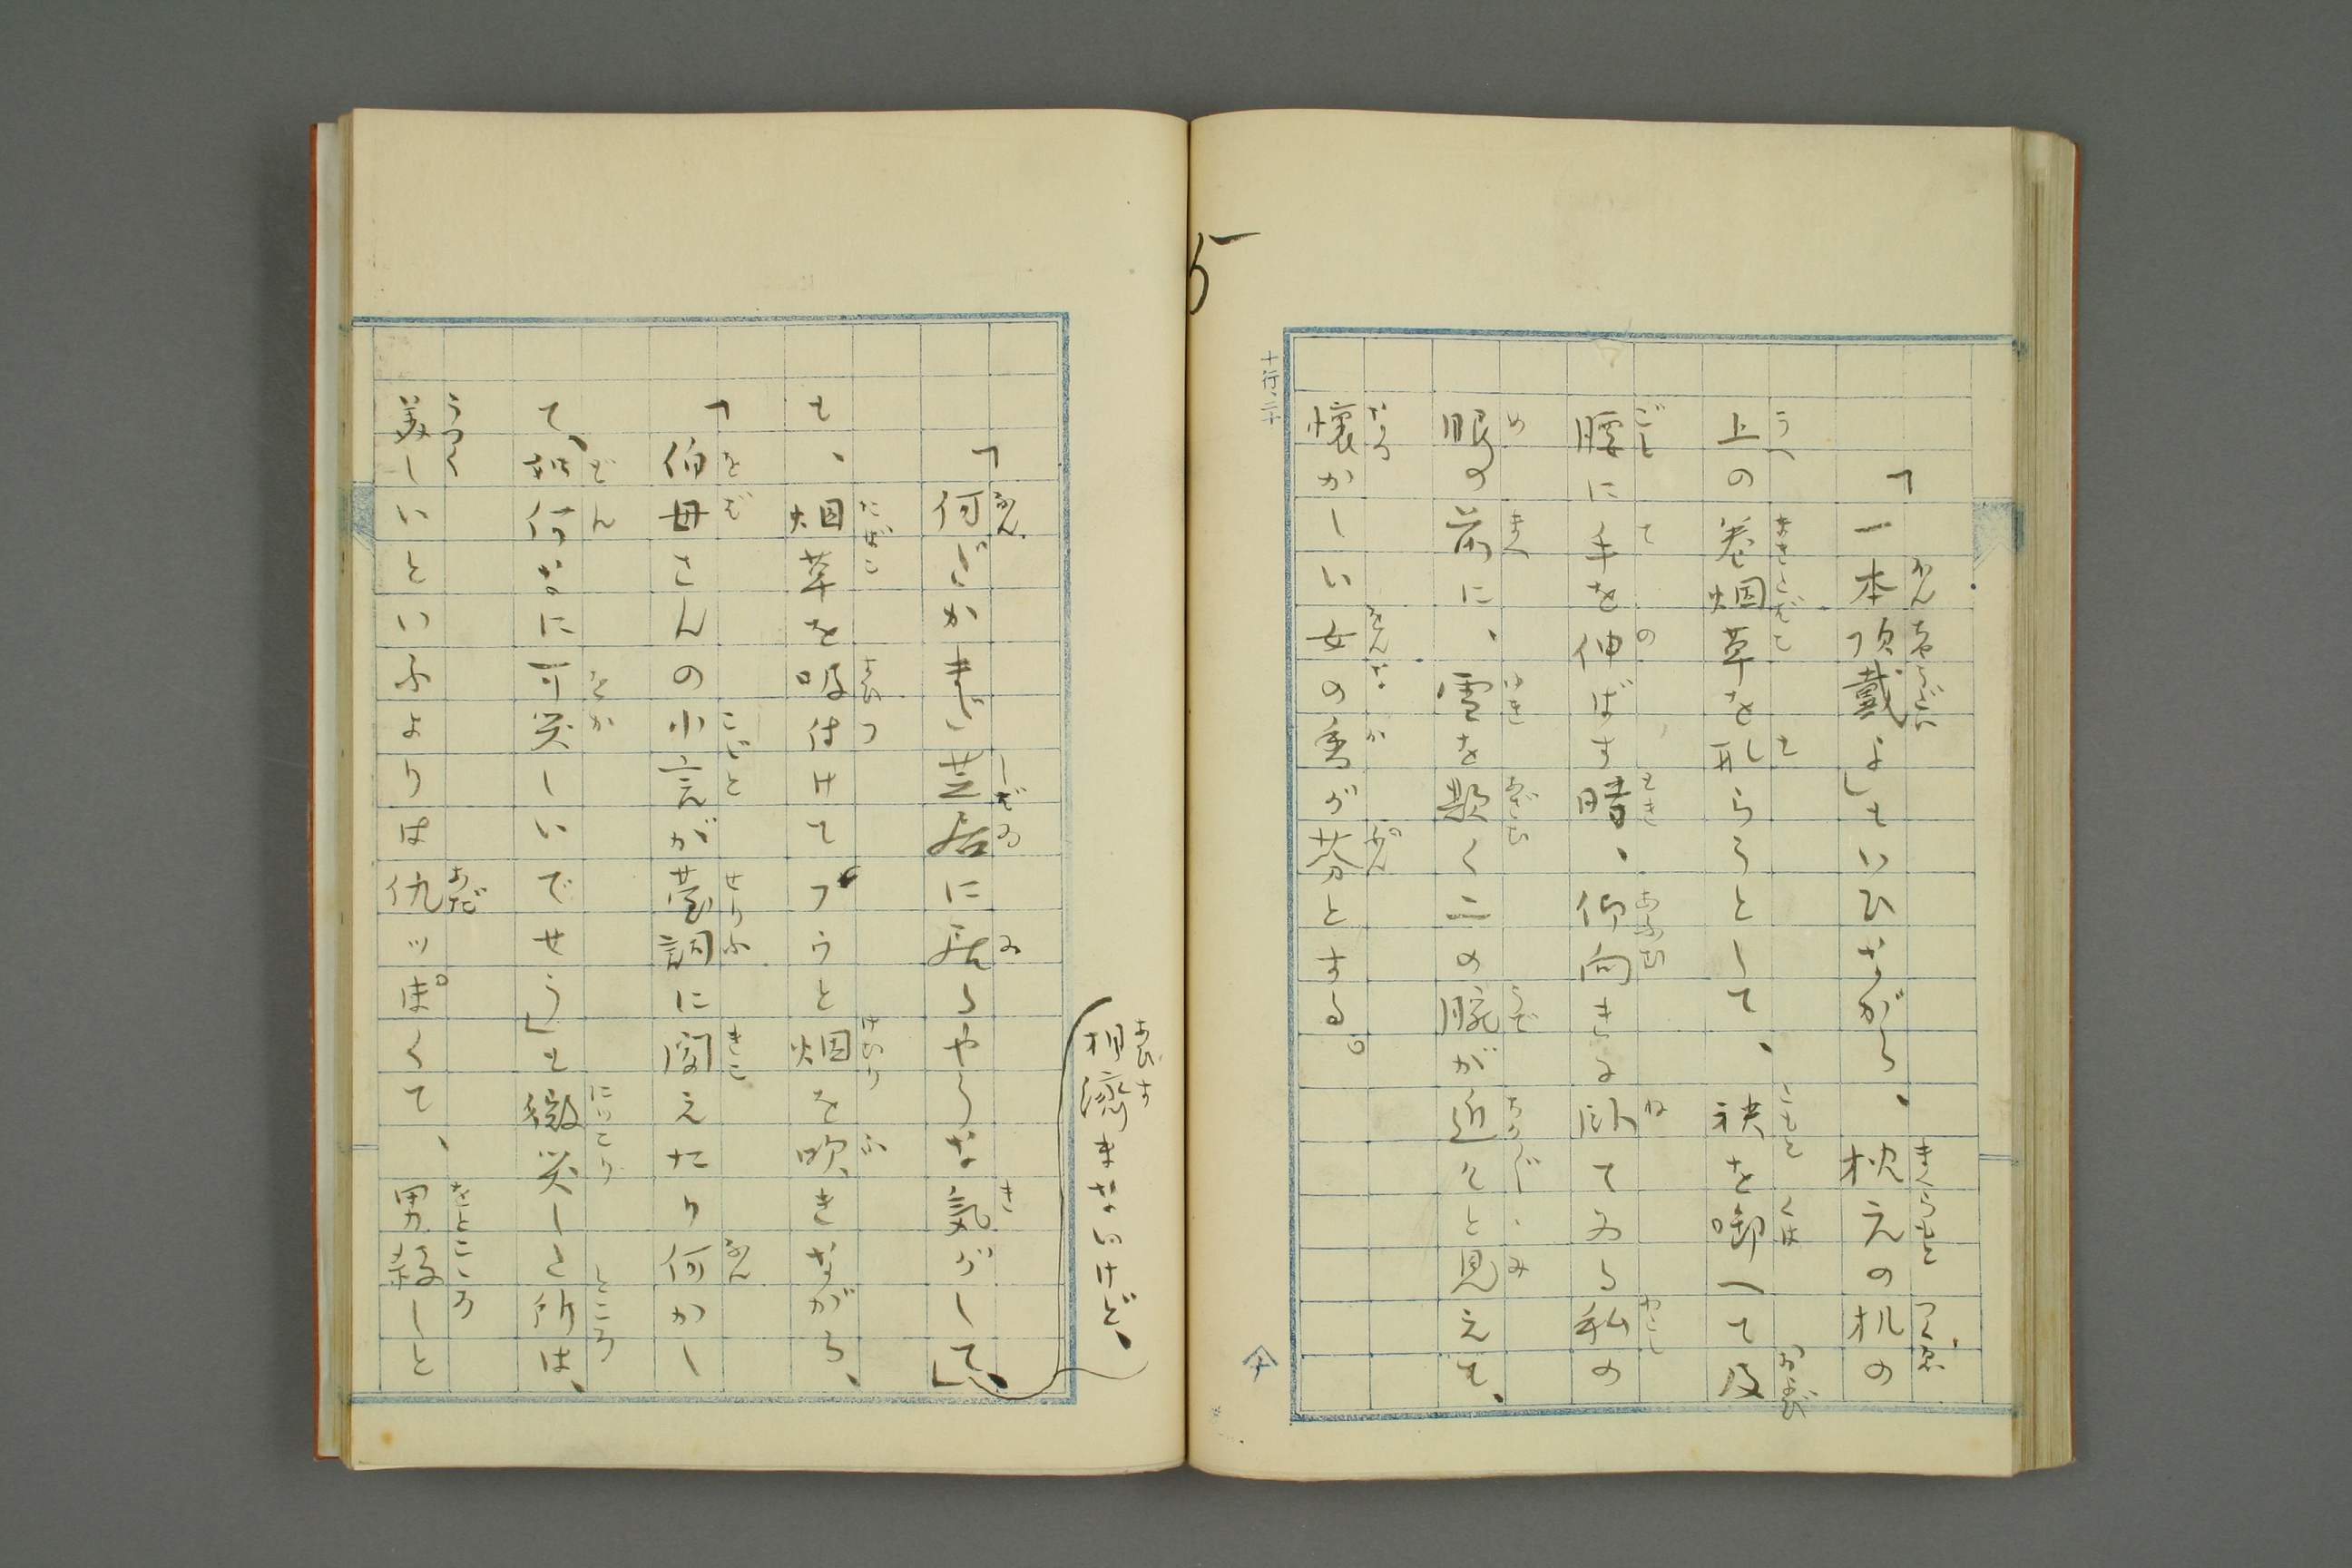 「一本頂戴よ」といひながら、枕元の机の
上の巻烟草を取らうとして、袂を啣へて及
腰に手を伸ばす時、仰向きに臥てゐる私の
眼の前に、雪を欺く二の腕が近々と見えて、
懐かしい女の香が芬とする。
「何だかまだ芝居に居るやうな気がして、
相済まないけど、」
と、烟草を吸付けてフウと烟を吹きながら、
「伯母さんの小言が台詞に聞えたり何かし
て、如何なに可笑しいでせう」と微笑した所は、
美しいといふよりは仇ッぽくて、男殺しと
5
十行二十